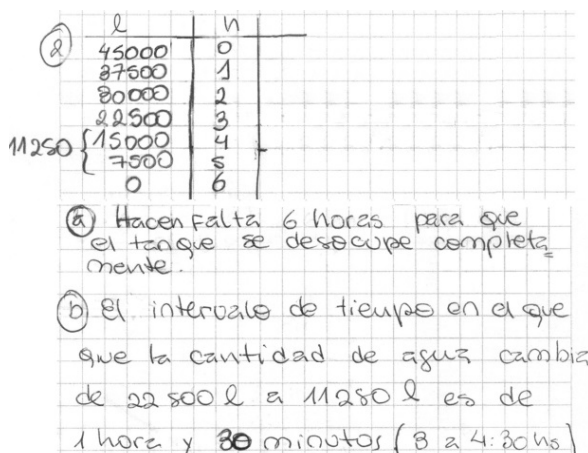 l h
② 45000 0
37500 1
30000 2
22500 3
11250 { 15000 4
7500 5
0 6
ⓐ Hacen Falta 6 horas para que
el tanque se desocupe completa
mente.
ⓑ El intervalo de tiempo en el que
que la cantidad de agua cambia
de 22500 l a 11250 l es de
1 hora y 30 minutos (3 a 4:30 hs)